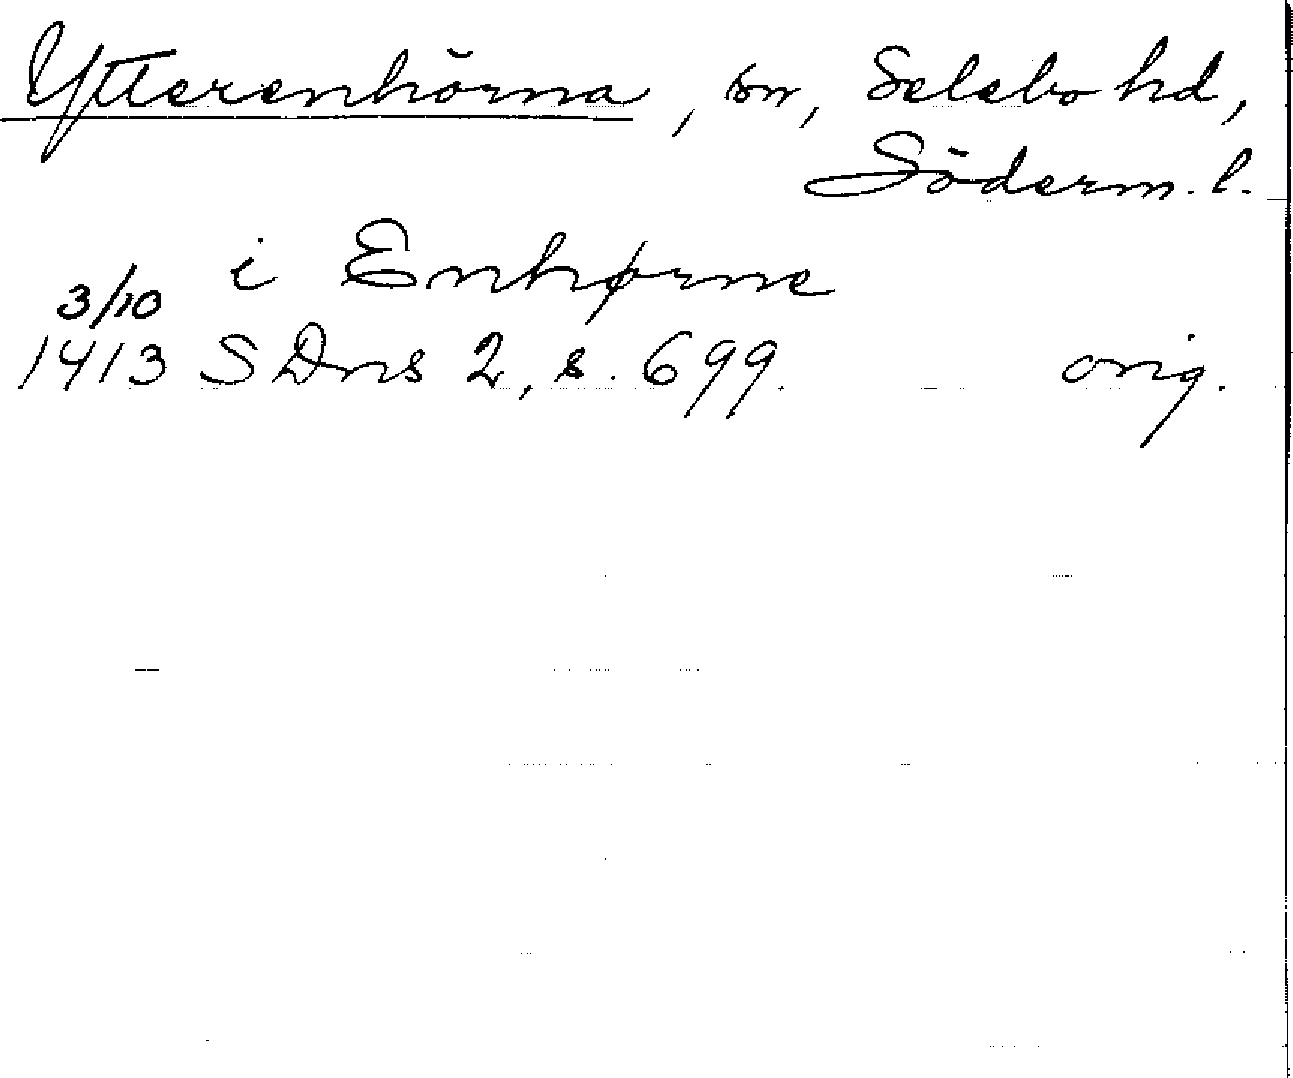 Ytterenhörna, sn, Selebo hd,
Söderm. l.
i Enhørne
3/10
1413 SDns 2, s. 699. orig.